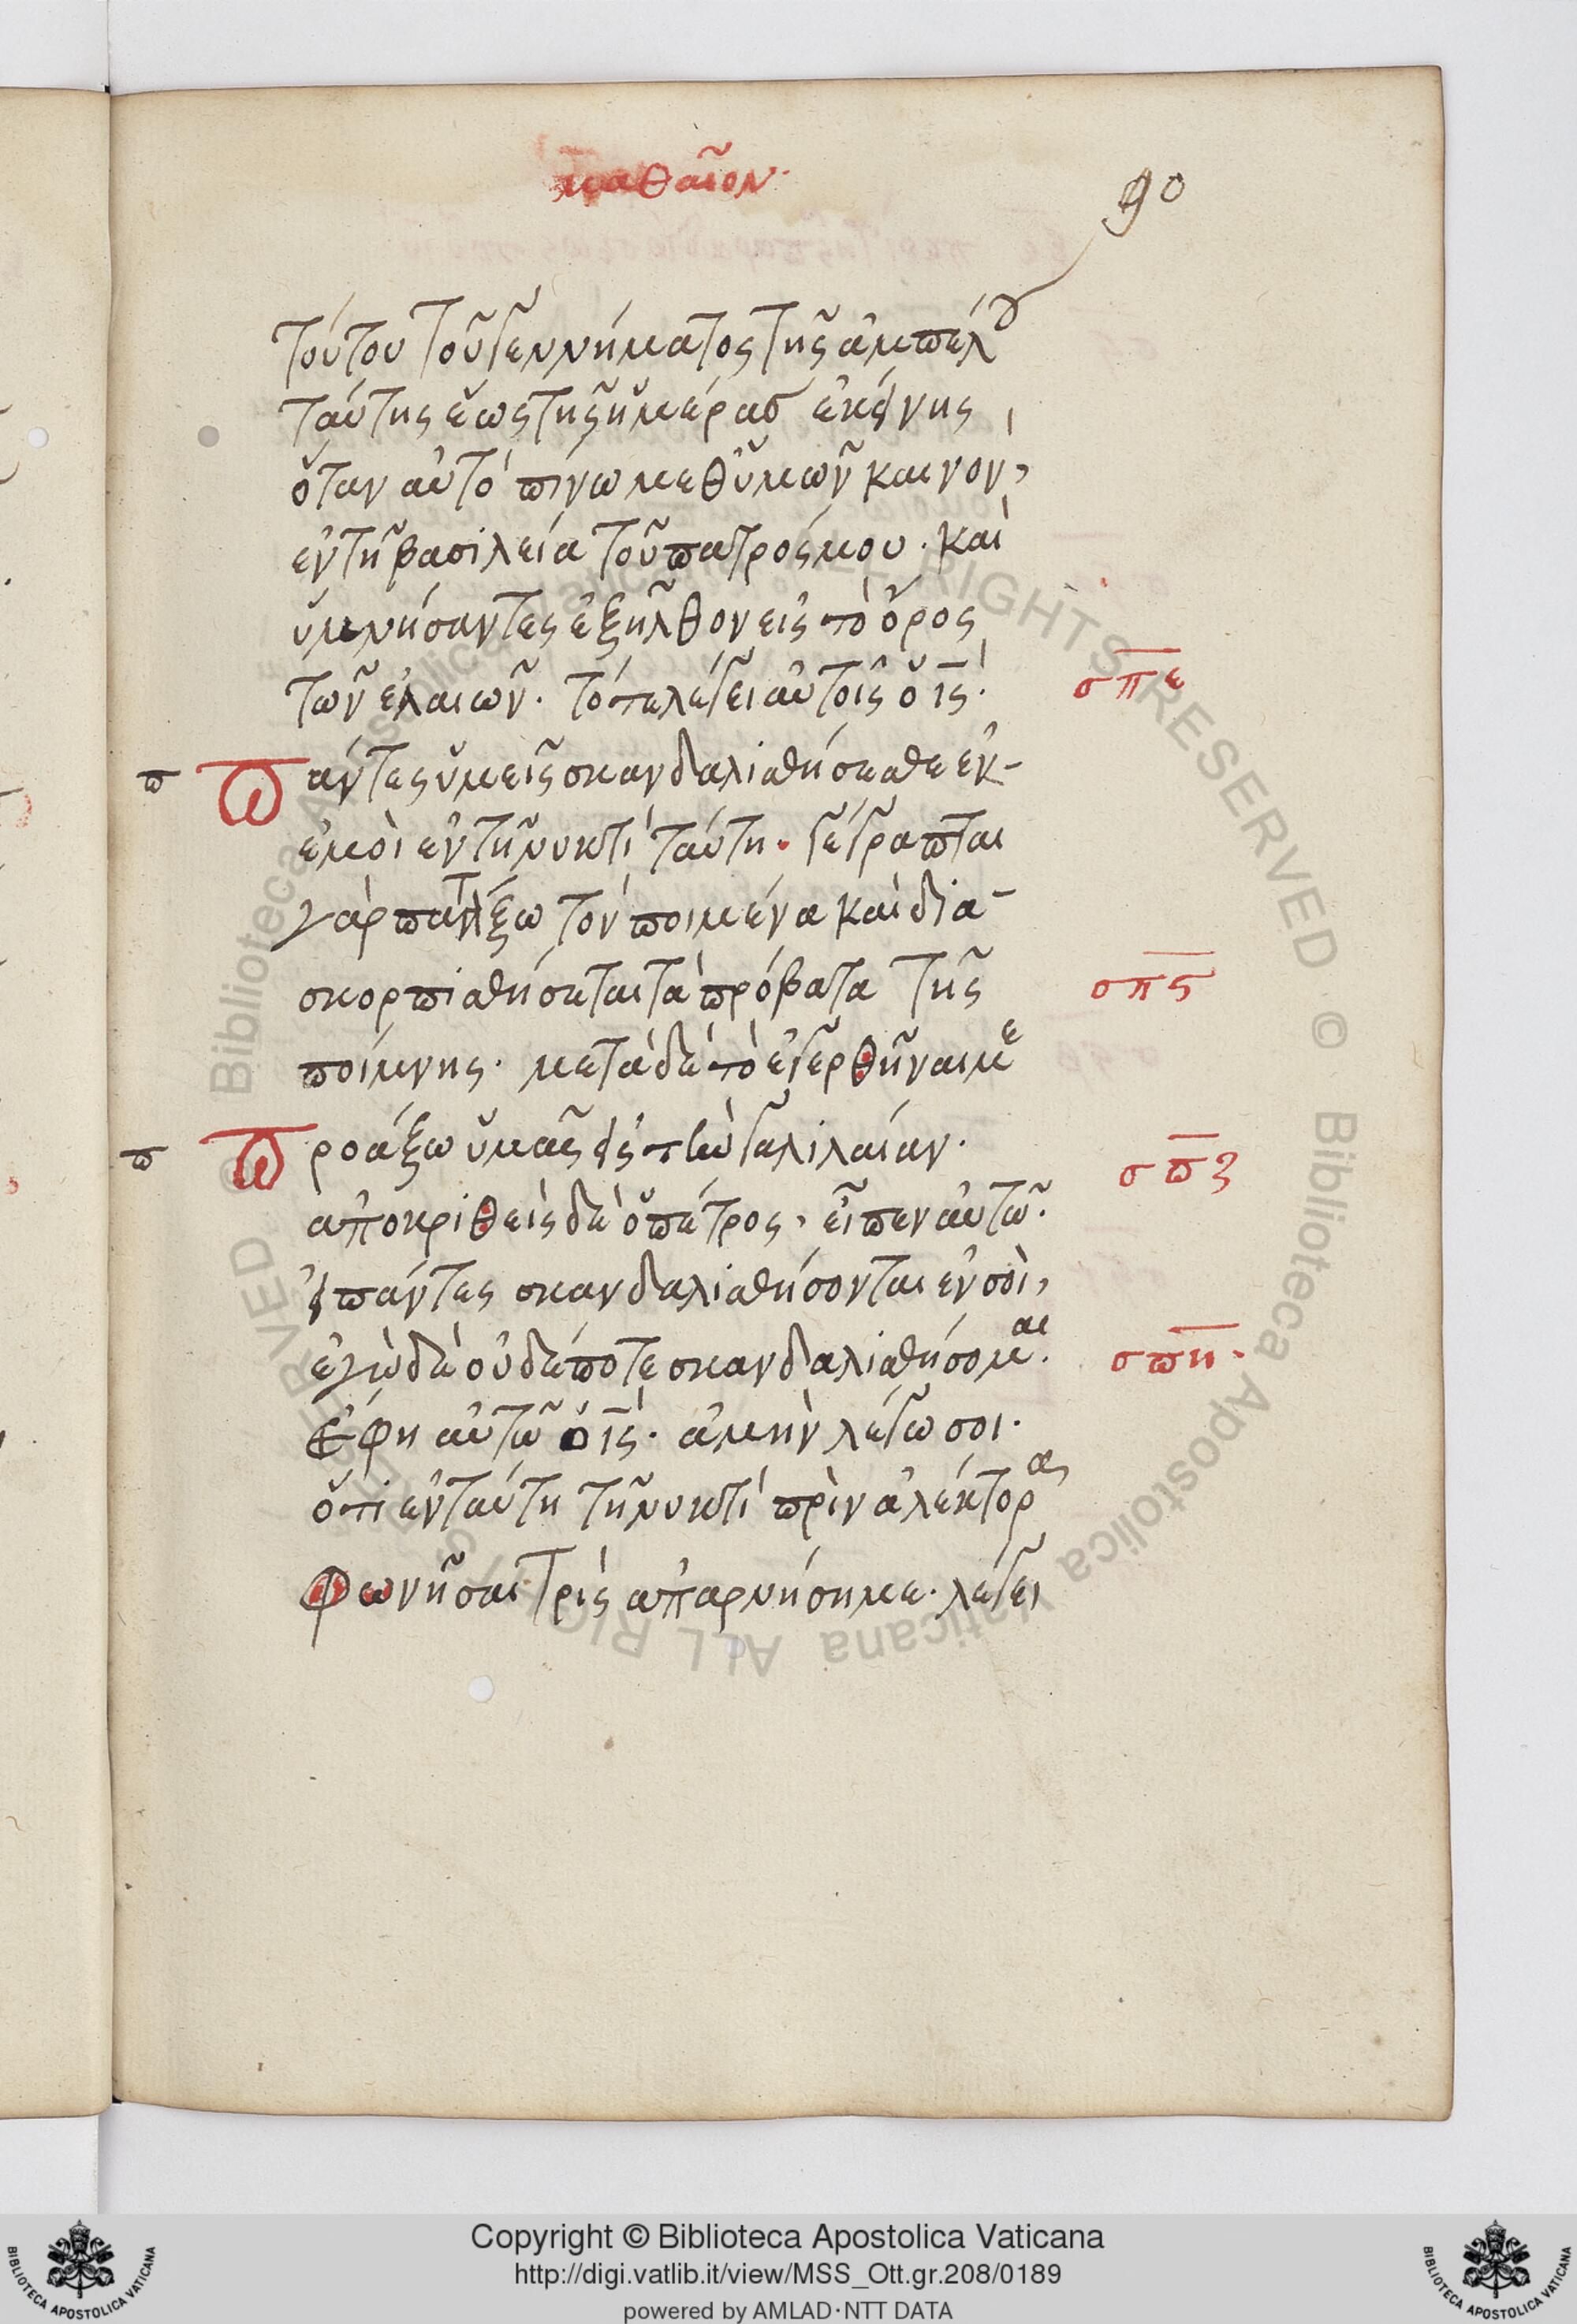 ματθαῖον.
90
τούτου τοῦ γεννήματος τῆς ἀμπέλου
ταύτης ἕως τῆς ἡμέρας ἐκείνης
ὅταν αὐτὸ πίνω μεθ ὑμῶν καινον,
ἐν τῆ βασιλεία τοῦ πατρός μου. καὶ
ὑμνήσαντες ἐξῆλθον εἰς τὸ ὄρος
τῶν ἐλαιῶν. τότε λέγει αὐτοῖς ὁ ις.
σπε
π
Πάντες ὑμεῖς σκανδαλισθήσεσθε ἐν
ἐμοὶ ἐν τῆ νυκτὶ ταύτη. γέγραπται
γὰρ πατάξω τὸν ποιμένα καὶ δια-
σκορπισθήσεται τὰ πρόβατα τῆς
σπς
ποίμνης. μετὰ δὲ τὸ ἐγερθῆναι με
π
Προάξω ὑμᾶς εἰς τὴν γαλιλαίαν.
σπζ
ἀποκριθεὶς δὲ ὁ πέτρος, εἶπεν αὐτῶ.
εἰ πάντες σκανδαλισθήσονται ἐν σοὶ,
ἐγὼ δὲ οὐδέποτε σκανδαλισθήσομαι.
σπη.
ἔφη αὐτῶ ὁ ις. ἀμὴν λέγω σοι.
ὅτι ἐν ταύτη τῆ νυκτὶ πρὶν ἀλέκτορα
φωνῆσαι τρὶς ἀπαρνήση με. λέγει
Copyright © Biblioteca Apostolica Vaticana
http://digi.vatlib.it/view/MSS_Ott.gr.208/0189
powered by AMLAD·NTT DATA
BIBLIOTECA APOSTOLICA VATICANA
BIBLIOTECA APOSTOLICA VATICANA
Biblioteca Apostolica Vaticana ALL RIGHTS RESERVED © Biblioteca Apostolica Vaticana ALL RIGHTS RESERVED ©